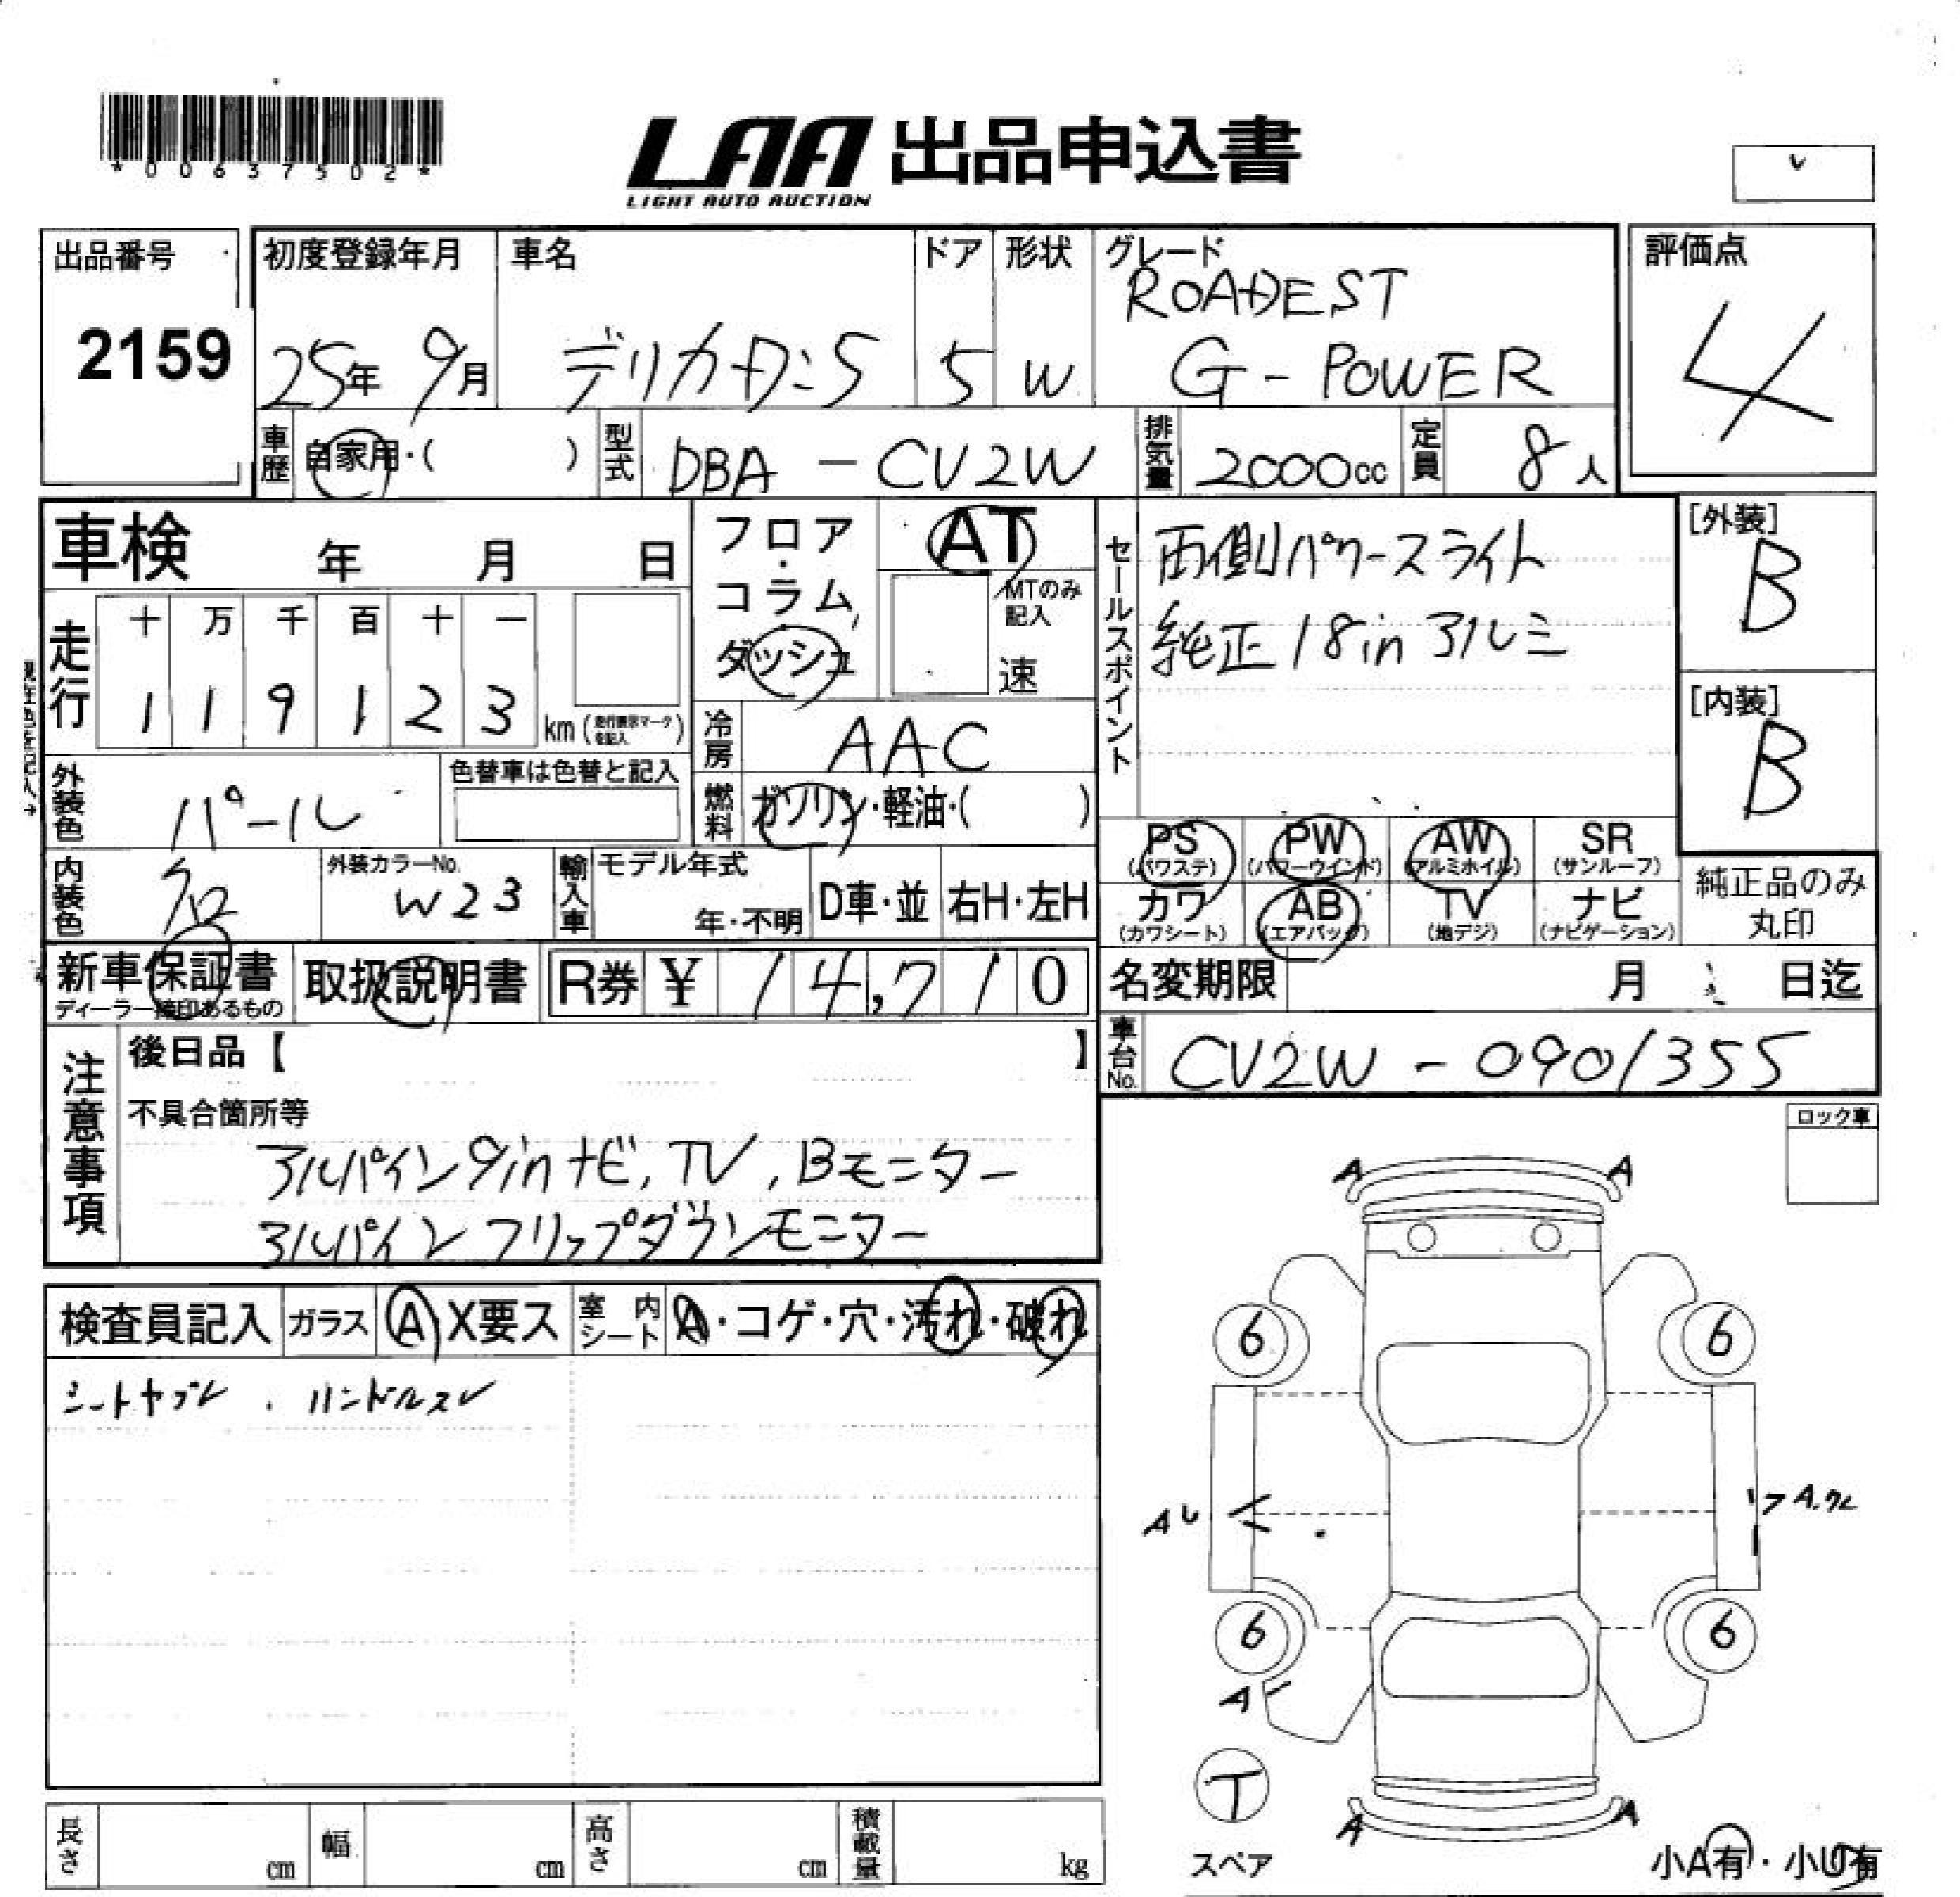 *00637502*
LAA 出品申込書
LIGHT AUTO AUCTION
出品番号
2159
初度登録年月
25年 9月
車名
デリカD:5
ドア
5
形状
W
グレード
ROADEST
G-POWER
評価点
4
車歴
自家用・( )
型式
DBA-CV2W
排気量
2000cc
定員
8人
車検 年 月 日
フロア・コラム
ダッシュ
AT
MTのみ記入
速
セールスポイント
両側パワースライト
純正18inアルミ
[外装]
B
[内装]
B
走行
十 万 千 百 十 一
1 1 9 1 2 3 km (走行表示マークを記入)
冷房
AAC
外装色
パール
色替車は色替と記入
燃料
ガソリン・軽油・( )
PS (パワステ)
PW (パワーウインド)
AW (アルミホイル)
SR (サンルーフ)
カワ (カワシート)
AB (エアバッグ)
TV (地デジ)
ナビ (ナビゲーション)
純正品のみ
丸印
内装色
クロ
外装カラーNo.
W23
輸入車
モデル年式
年・不明
D車・並
右H・左H
新車保証書
ディーラー捺印あるもの
取扱説明書
R券 ¥ 14,710
名変期限 月 日迄
車台No.
CV2W-0901355
注意事項
後日品【 】
不具合箇所等
アルパイン9inナビ,TV,Bモニター
アルパインフリップダウンモニター
ロック車
検査員記入
ガラス
A・X要ス
室内シート
A・コゲ・穴・汚れ・破れ
シートヤブレ . ハンドルスレ
A A
6 6
A
A
6 6
A
T
スペア
A A
小A有・小U有
長さ cm
幅 cm
高さ cm
積載量 kg